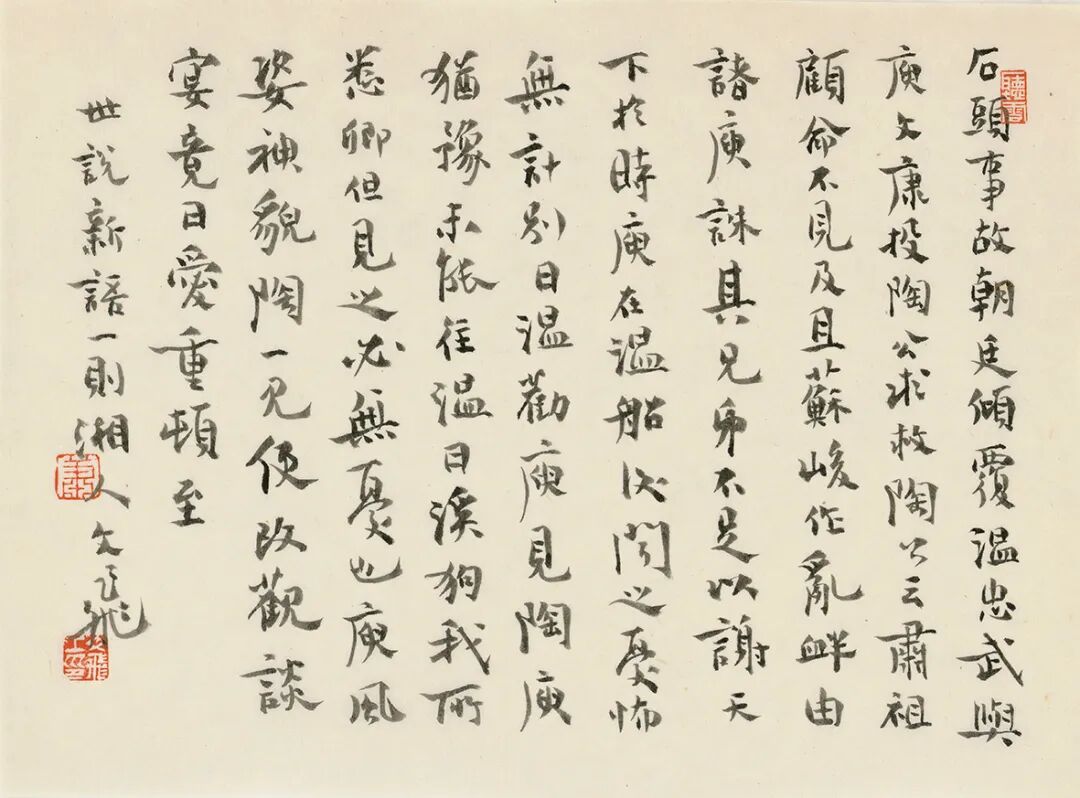 石頭事故朝廷傾覆溫忠武與
庾文康投陶公求救陶公云肅祖
顧命不見及且蘇峻作亂衅由
諸庾誅其兄弟不足以謝天
下於時庾在溫船後聞之憂怖
無計別日溫勸庾見陶庾
猶豫未能往溫曰溪狗我所
悉卿但見之必無憂也庾風
姿神貌陶一見便改觀談
宴竟日愛重頓至
世說新語一則湘人文飛